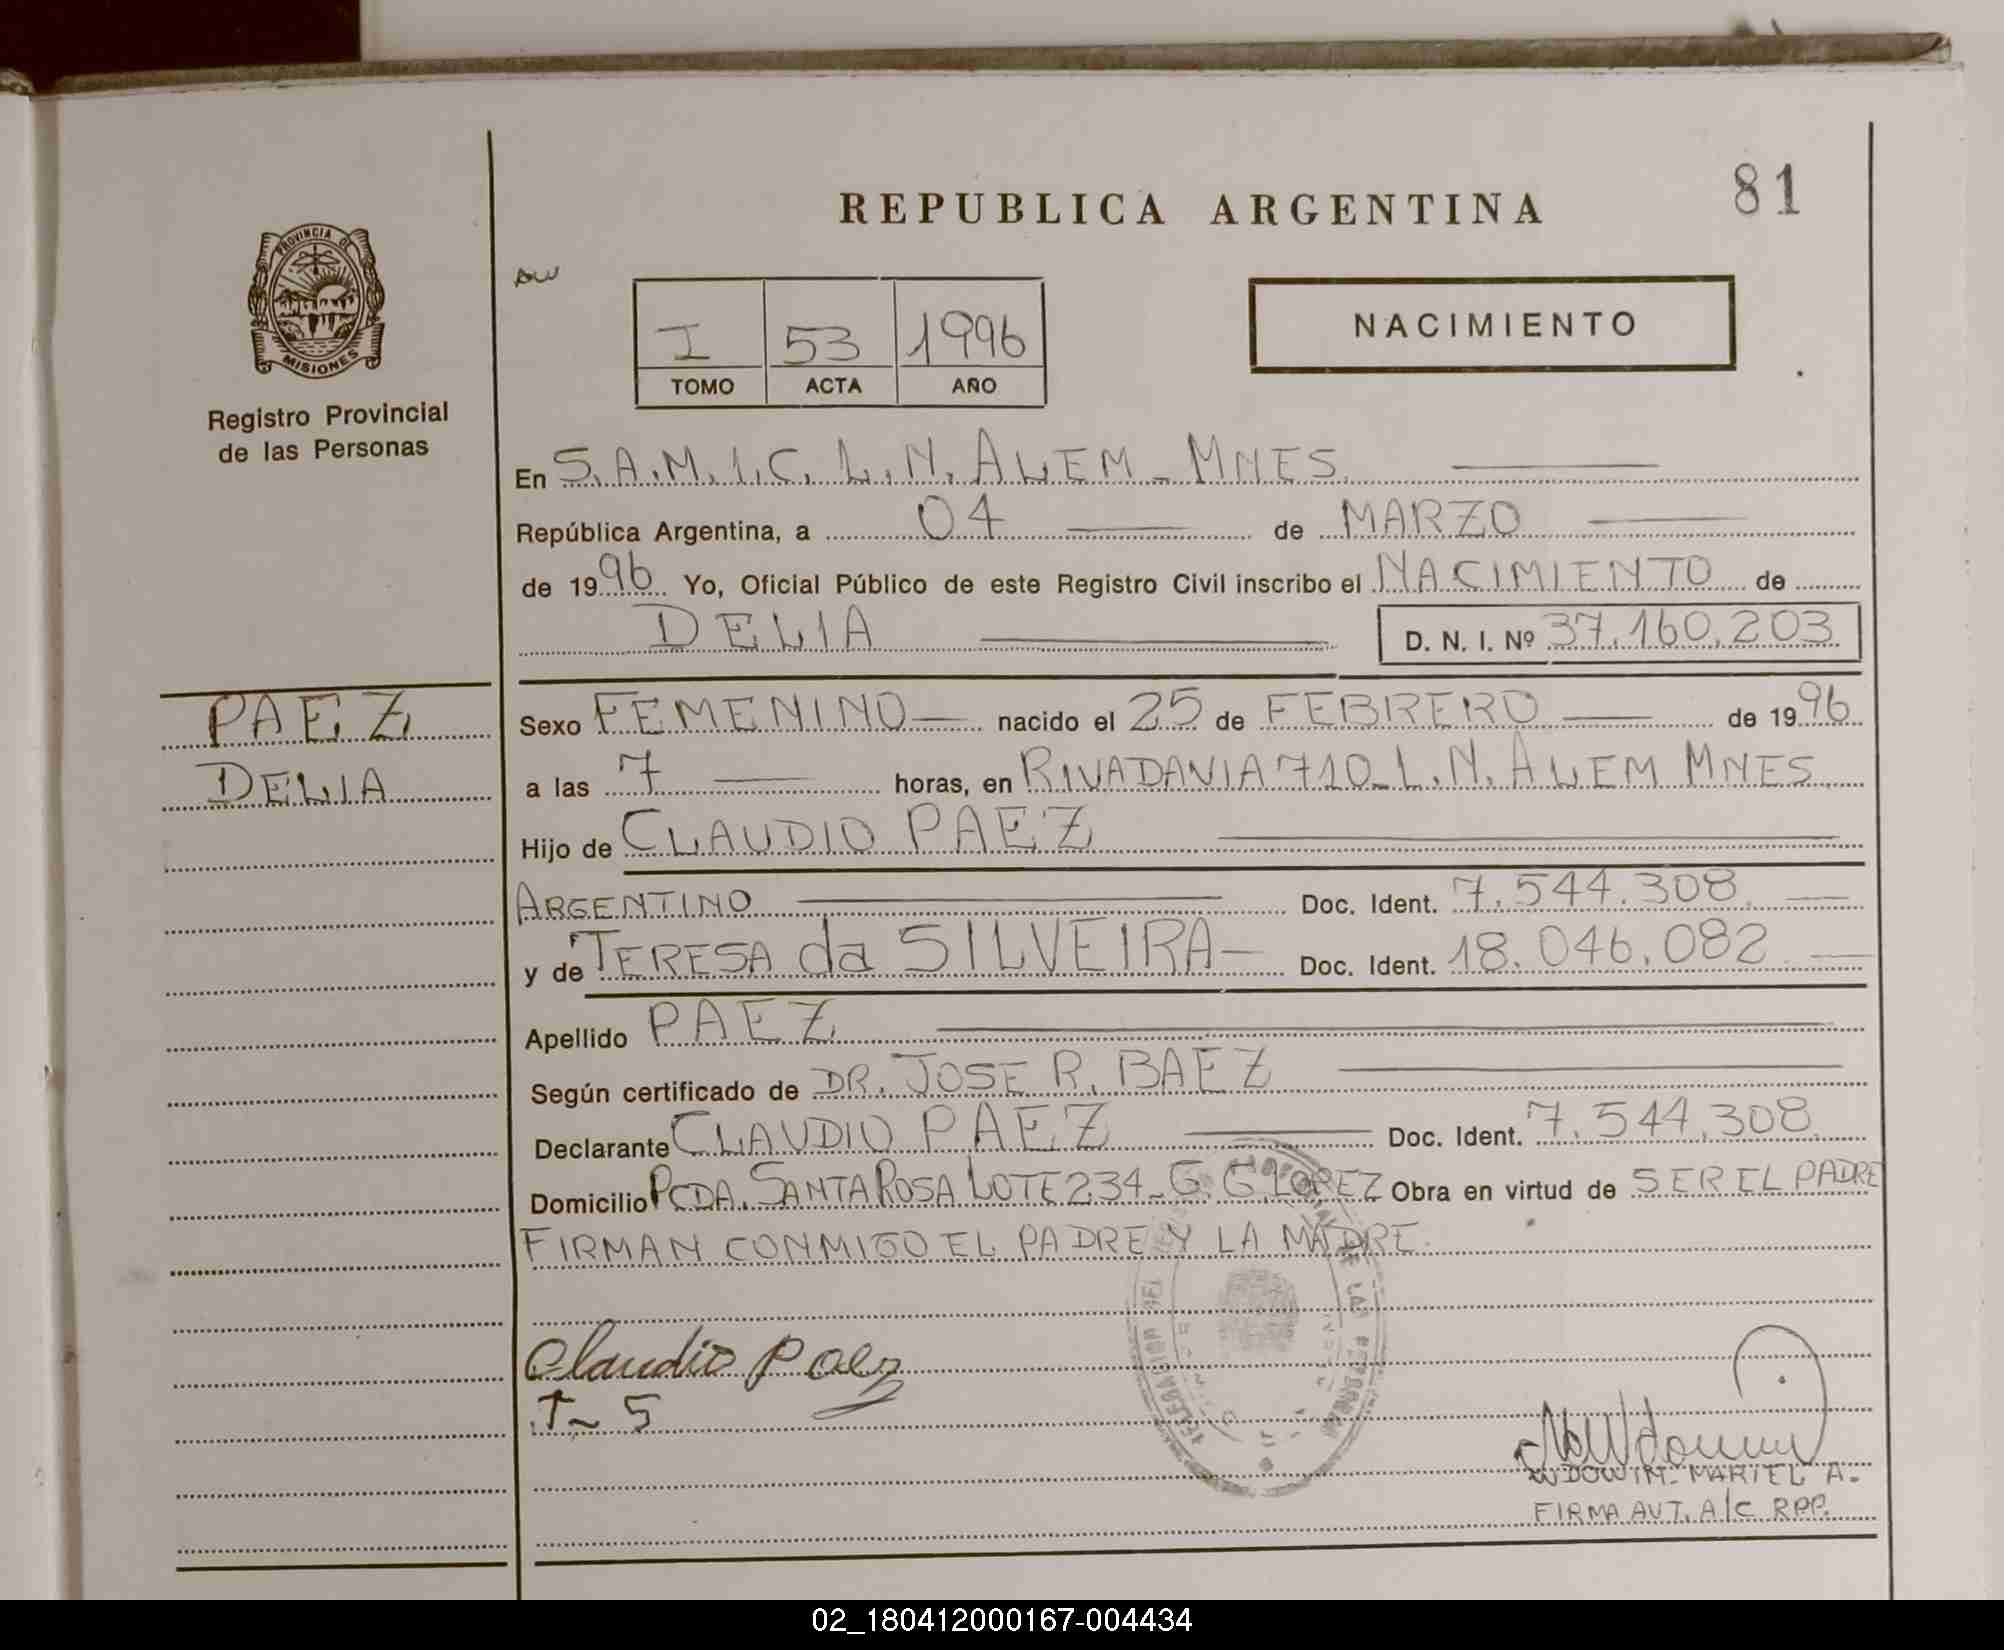 81
REPUBLICA ARGENTINA
PROVINCIA DE
MISIONES
Registro Provincial
de las Personas
I 53 1996
TOMO ACTA AÑO
NACIMIENTO
En S.A.M.I.C. L.N. ALEM - MNES.
República Argentina, a 04 de MARZO
de 1996 Yo, Oficial Público de este Registro Civil inscribo el NACIMIENTO de
DELIA D. N. I. Nº 37.160.203
PAEZ
DELIA
Sexo FEMENINO nacido el 25 de FEBRERO de 1996
a las 7 horas, en RIVADAVIA 710 - L.N. ALEM MNES
Hijo de CLAUDIO PAEZ
ARGENTINO Doc. Ident. 7.544.308
y de TERESA da SILVEIRA Doc. Ident. 18.046.082
Apellido PAEZ
Según certificado de DR. JOSE R. BAEZ
Declarante CLAUDIO PAEZ Doc. Ident. 7.544.308
Domicilio PCDA. SANTA ROSA LOTE 234 - G. G. LOPEZ Obra en virtud de SER EL PADRE
FIRMAN CONMIGO EL PADRE Y LA MADRE.
Claudio Paez
T S
MARIEL A.
FIRMA AUT. A/C RPP.
02_180412000167-004434